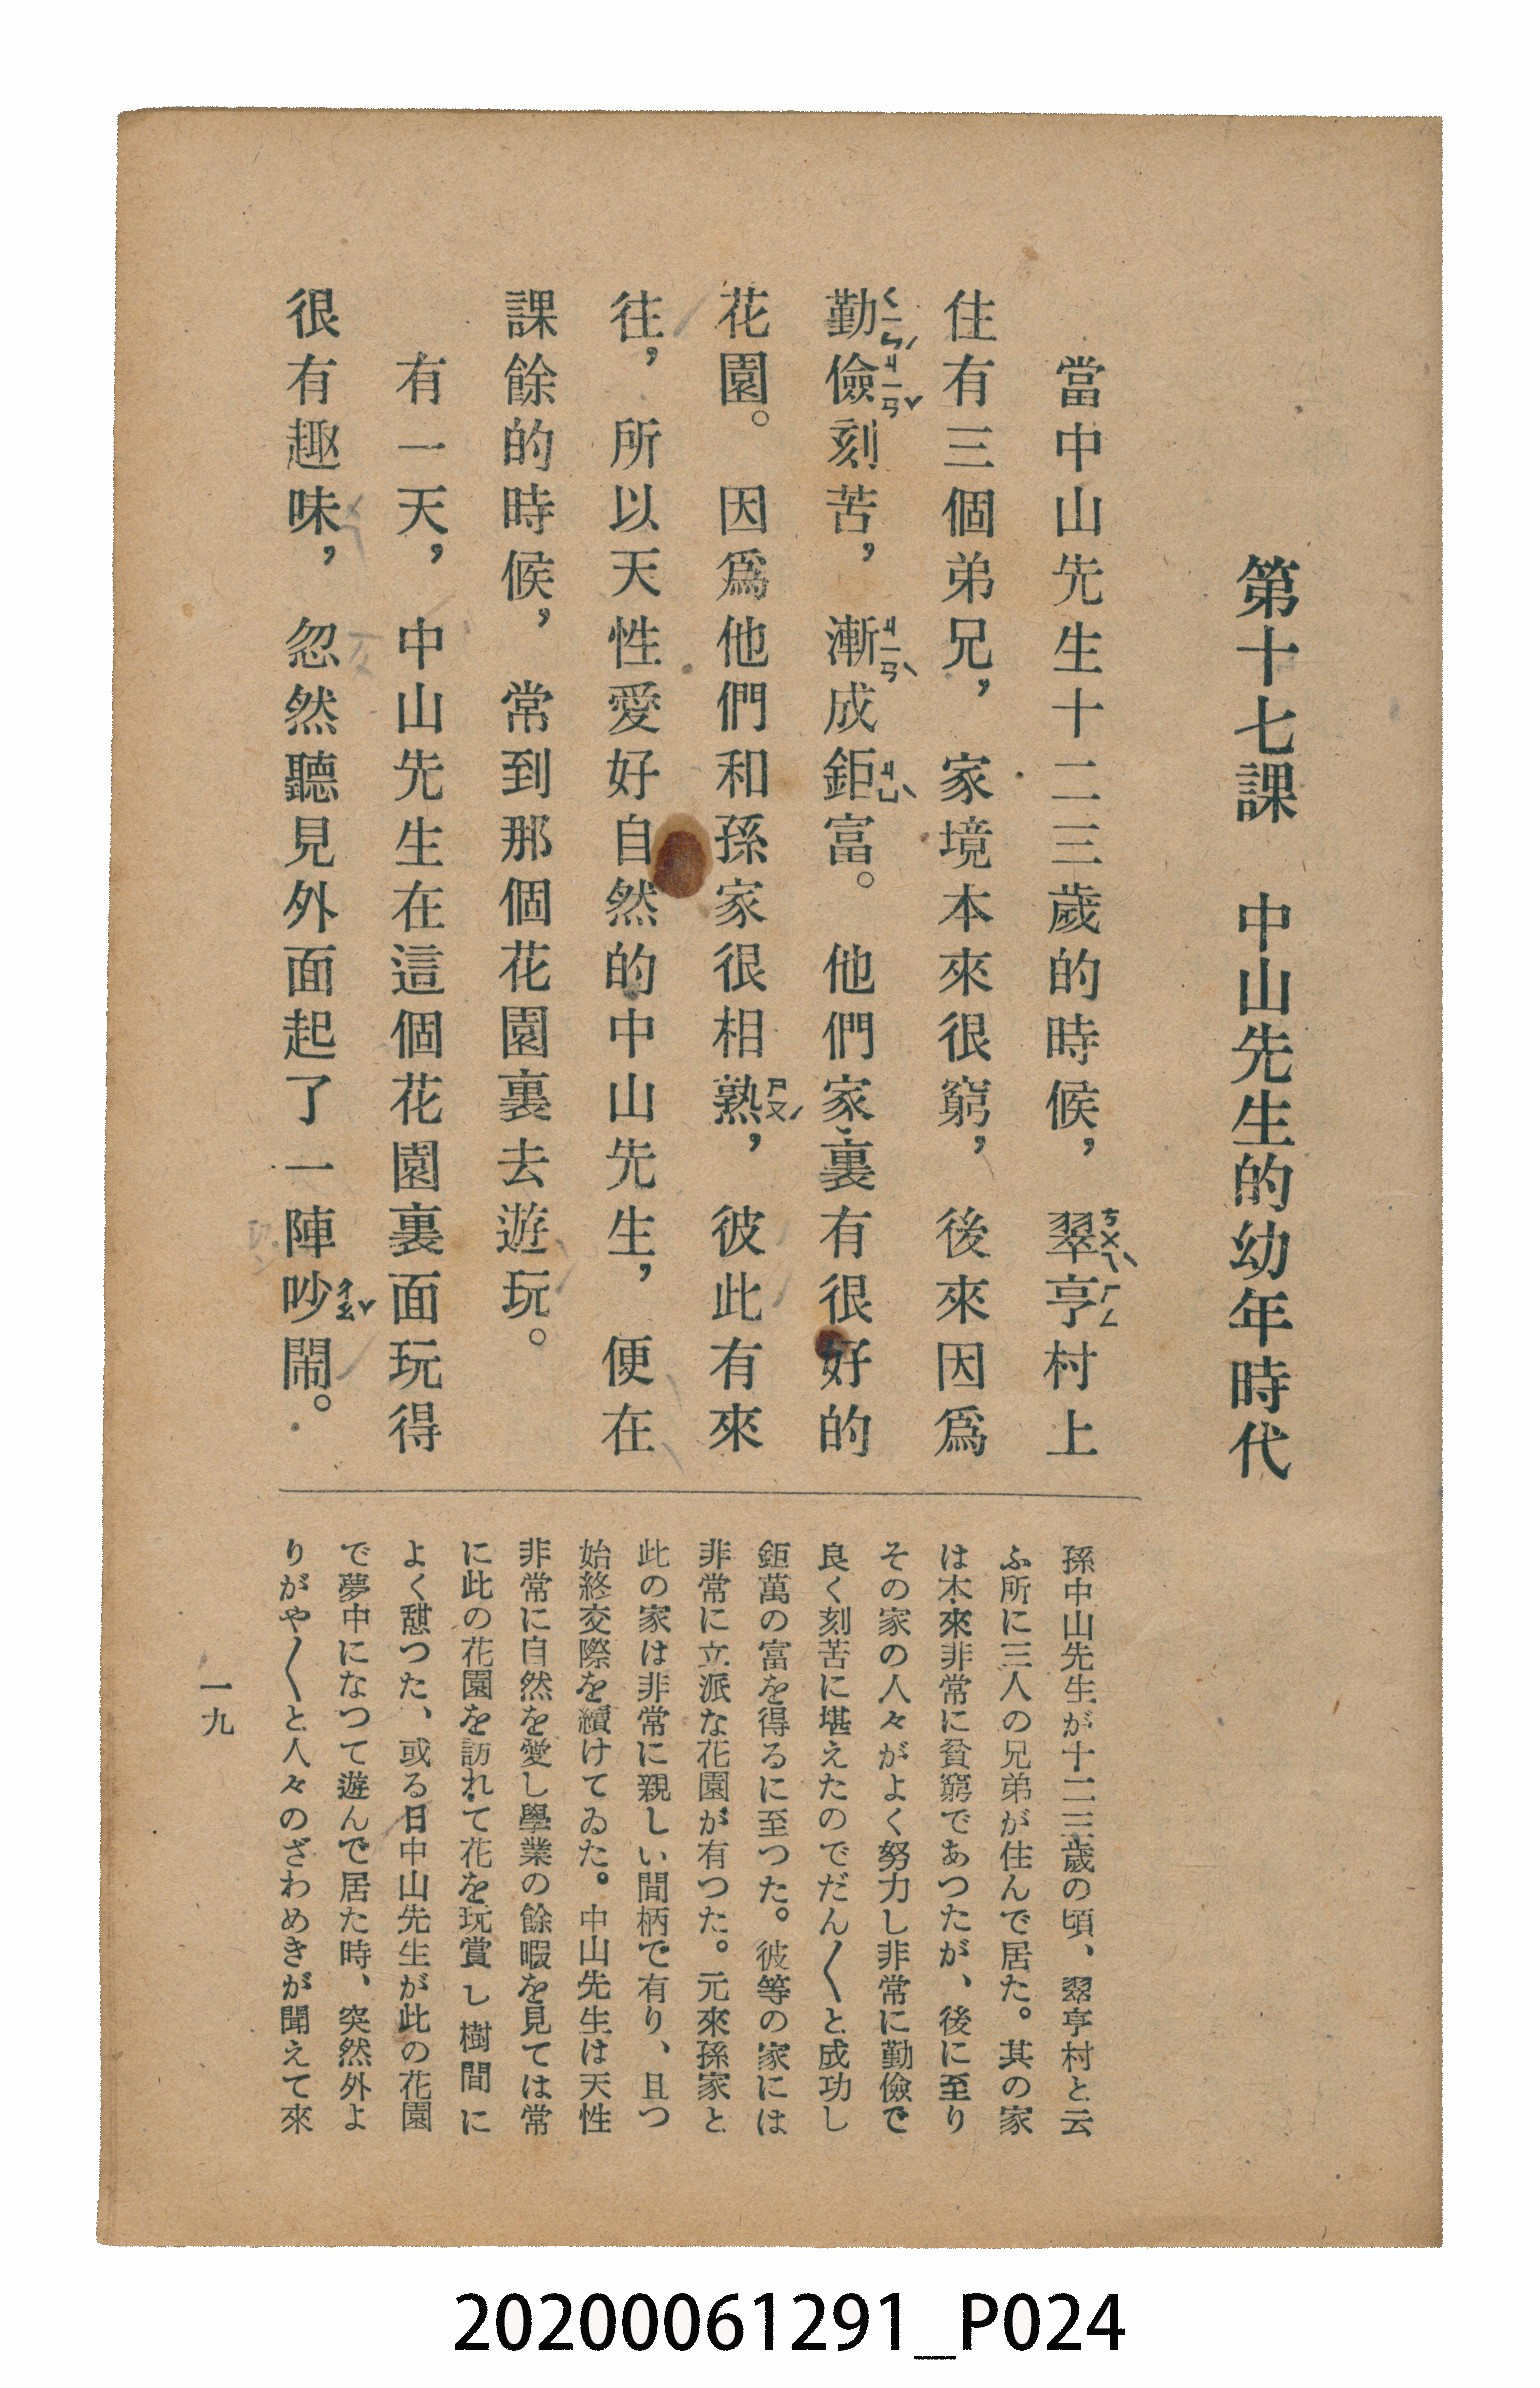 第十七課　中山先生的幼年時代
當中山先生十二三歲的時候，翠亨村上
住有三個弟兄，家境本來很窮，後來因爲
勤儉刻苦，漸成鉅富。他們家裏有很好的
花園。因爲他們和孫家很相熟，彼此有來
往，所以天性愛好自然的中山先生，便在
課餘的時候，常到那個花園裏去遊玩。
有一天，中山先生在這個花園裏面玩得
很有趣味，忽然聽見外面起了一陣吵鬧。
ㄘㄨㄟˋ
ㄏㄥ
ㄑㄧㄣˊ
ㄐㄧㄢˇ
ㄐㄧㄢˋ
ㄐㄩˋ
ㄕㄡˊ
ㄔㄠˇ
孫中山先生が十二三歲の頃、翠亨村と云
ふ所に三人の兄弟が住んで居た。其の家
は本來非常に貧窮であつたが、後に至り
その家の人々がよく努力し非常に勤儉で
良く刻苦に堪えたのでだん〱と成功し
鉅萬の富を得るに至つた。彼等の家には
非常に立派な花園が有つた。元來孫家と
此の家は非常に親しい間柄で有り、且つ
始終交際を續けてゐた。中山先生は天性
非常に自然を愛し學業の餘暇を見ては常
に此の花園を訪れて花を玩賞し樹間に
よく憇つた、或る日中山先生が此の花園
で夢中になつて遊んで居た時、突然外よ
りがや〱と人々のざわめきが聞えて來
一九
20200061291_P024